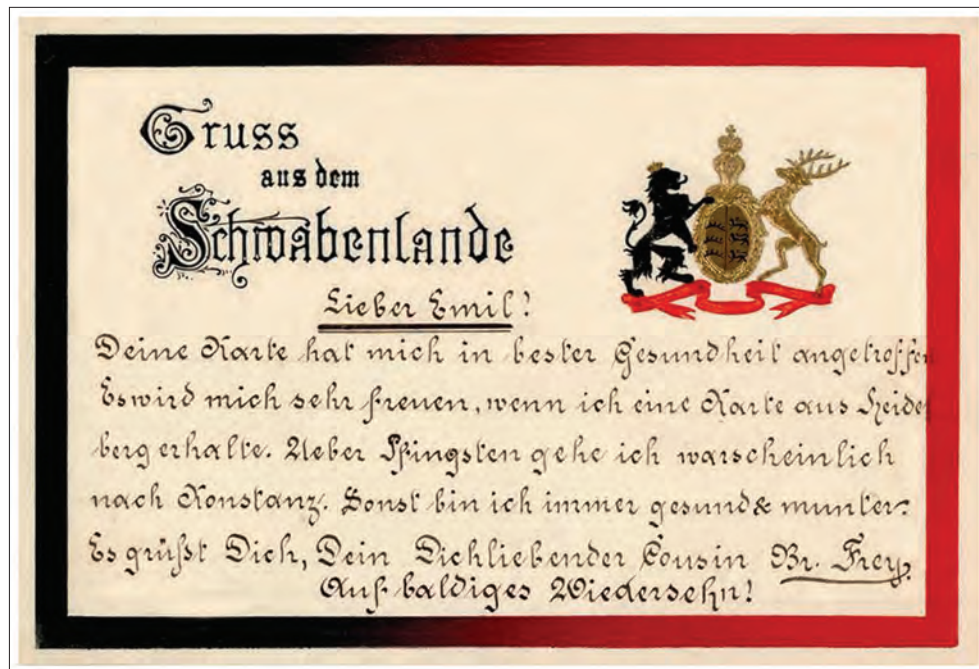 Gruss
aus dem
Schwabenlande
Lieber Emil!
Deine Karte hat mich in bester Gesundheit angetroffen
Es wird mich sehr freuen, wenn ich eine Karte aus Heidel
berg erhalte. Ueber Pfingsten gehe ich warscheinlich
nach Konstanz. Sonst bin ich immer gesund & munter.
Es grüßt Dich, Dein Dichliebender Cousin Br. Frey.
Auf baldiges Wiedersehn!